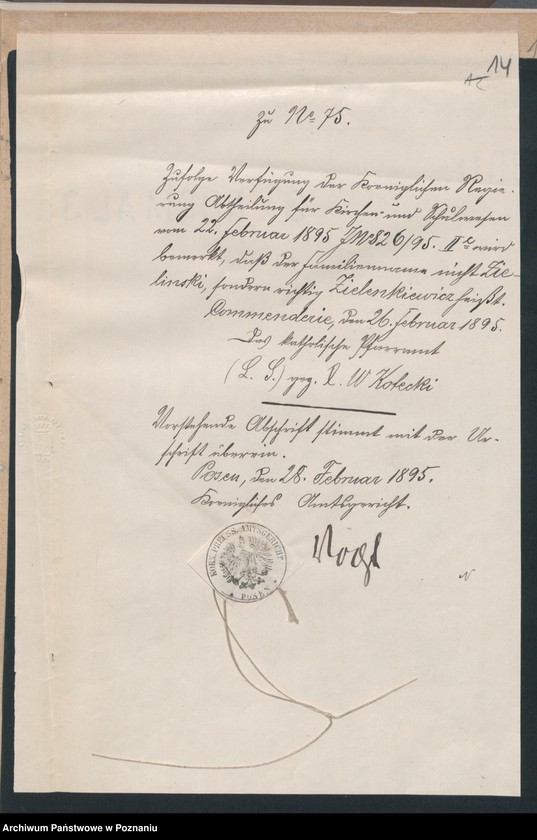 14
zu No 75.
Zufolge Verfügung der Koeniglichen Regie-
rung Abtheilung für Kirchen- und Schulwesen
vom 22. Februar 1895 JN 826/95. II wird
bemerkt, daß der Familienname nicht Zie-
linski, sondern richtig Zielenkiewicz heißt.
Commenderie, den 26. Februar 1895.
Das katholische Pfarramt
(L. S.) gez. W Kotecki
Vorstehende Abschrift stimmt mit der Ur-
schrift überein.
Posen, den 28. Februar 1895.
Koenigliches Amtsgericht.
Vogt
KOEN. PREUSS. AMTSGERICHT
* POSEN *
Archiwum Państwowe w Poznaniu